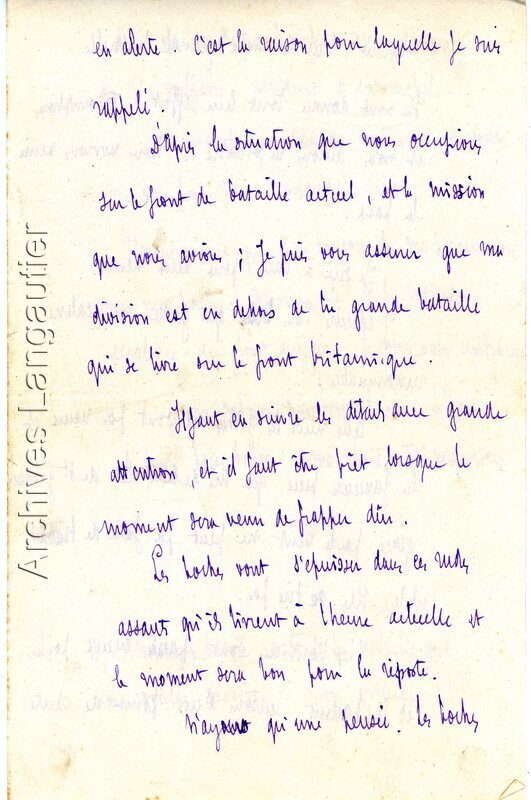 en alerte c'est la raison pour laquelle je suis
rappelé.
D'après la situation que nous occupions
sur le front de bataille actuel, et la mission
que nous avions ; Je puis vous assurer que ma
division est en dehors de la grande bataille
qui se livre sur le front britannique.
Il faut en suivre les détails avec grande
attention, et il faut être prêt lorsque le
moment sera venu de frapper dur.
Les boches vont s'épuiser dans ces rudes
assauts qu'ils livrent à l'heure actuelle et
le moment sera bon pour la riposte.
N'ayons qu'une pensée. les boches
Archives Langautier